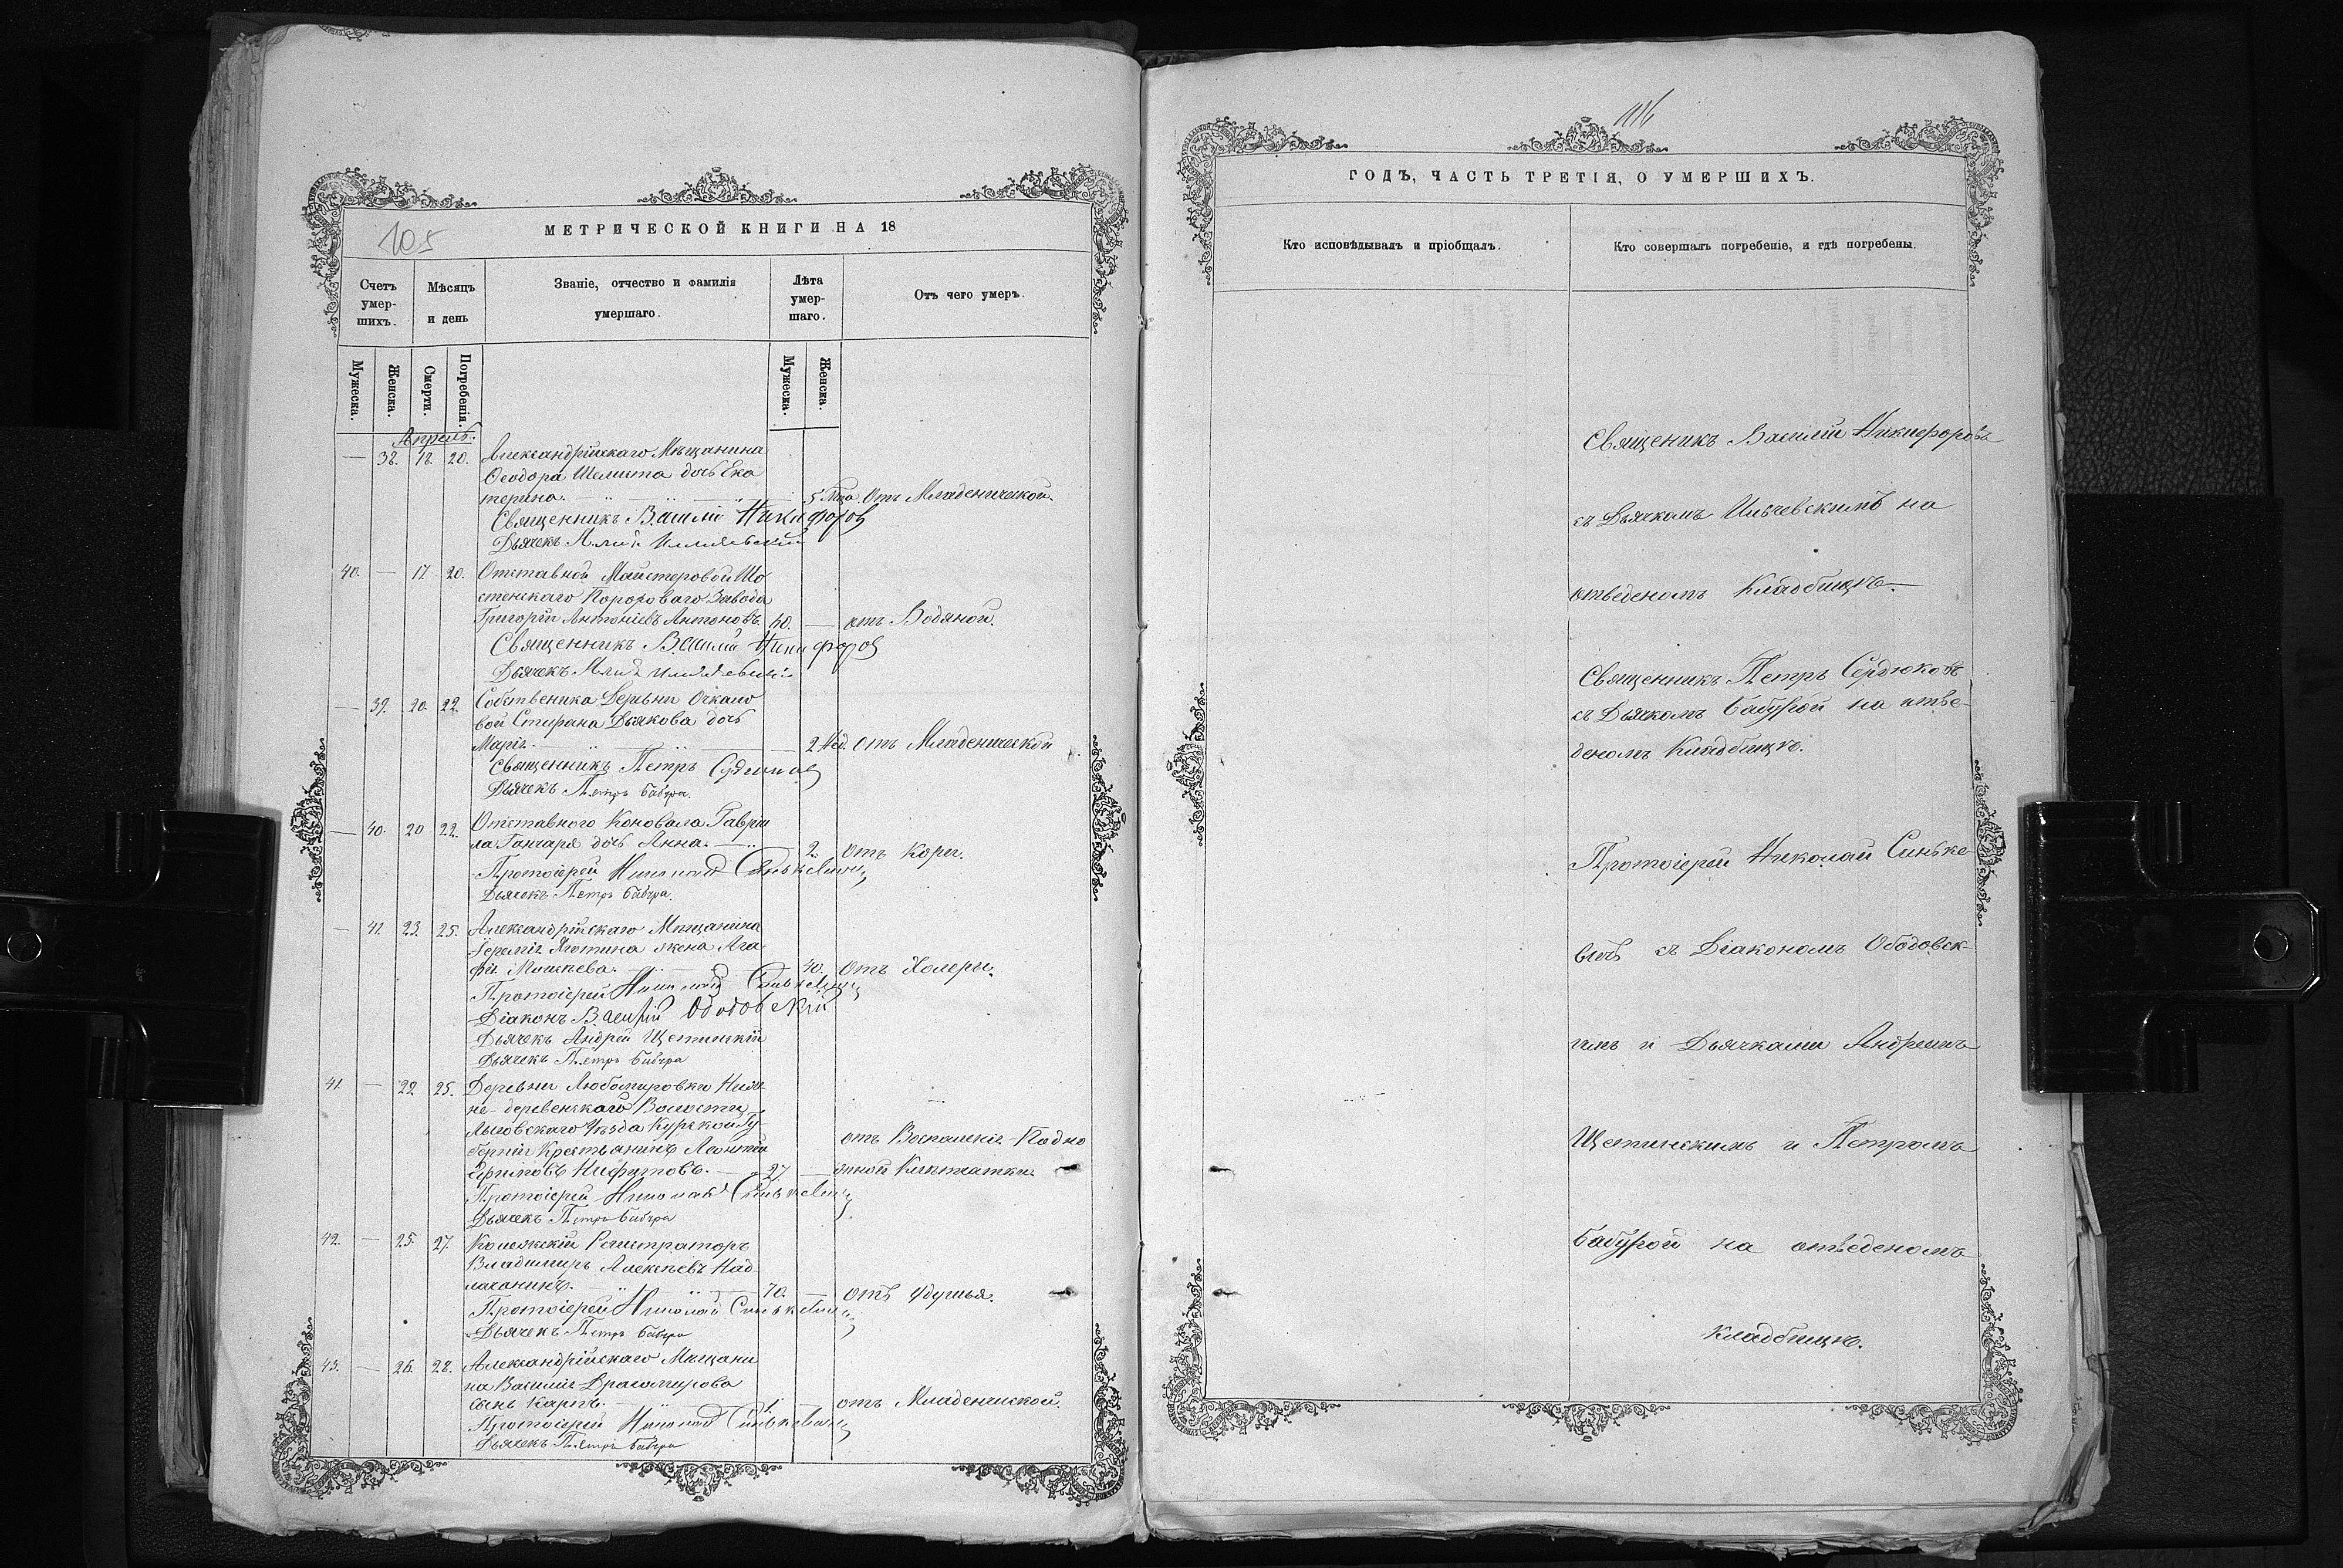 105
МЕТРИЧЕСКОЙ КНИГИ НА 18
Счетъ умер-шихъ.
Мѣсяцъ и день
Званіе, отчество и фамилія умершаго.
Лѣта умер-шаго.
Отъ чего умеръ.
Мужеска.
Женска.
Смерти.
Погребенія.
Мужеска.
Женска.
Апрель.
— 38. 18. 20. Александрійскаго Мѣщанина
Ѳеодора Шелеста дочь Ека
терина. — 5 Отъ Младенческой.
Священникъ Василій Никифоровъ
Дьячекъ
40. — 17 20. Отставной Майстеровой Шо
стенскаго Пороховаго Завода
Григорій Антоніевъ Антоновъ. 40. — отъ Водяной.
Священникъ Василій Никифоровъ
Дьячекъ
— 39. 20. 22. Собственика Деревни
вой Стефана Дьякова дочь
Марія. — 2 Нед. отъ Младенческой
Священникъ Петръ Сердюковъ
Дьячекъ Петръ Бабура.
— 40. 20 22. Отставного Коновала Гаврии
ла Гончара дочь Анна. — 2. отъ Кори.
Протоіерей Николай Синькевичъ
Дьячекъ Петръ Бабура.
— 41. 23. 25. Александрійскаго Мѣщанина
Іереміи Яготина жена Ага
фія Моисеева. — 40. Отъ Холеры.
Протоіерей Николай Синькевичъ
Діаконъ Василій Ободовскій
Дьячекъ Андрей Щетинскій
Дьячекъ Петръ Бабура
41. — 22 25. Деревни Любомировки Ниж
не-деревенскаго Волости
Льговскаго Уѣзда Курской Гу
берніи Крестьянинъ Леонтій
Ефимовъ — 27. — отъ Воспаленія Подко
жной Клѣтчатки.
Протоіерей Николай Синькевичъ
Дьячекъ Петръ Бабура
42. — 25. 27. Колежскій Регистраторъ
Владимиръ Алексѣевъ Над
— 70. — отъ Удушья.
Протоіерей Николай Синькевичъ
Дьячекъ Петръ Бабура
43. — 26. 28. Александрійскаго Мѣщани
на Василія Драгомирова
сынъ Карпъ. — 1 — отъ Младенческой.
Протоіерей Николай Синькевичъ
Дьячекъ Петръ Бабура
ГОДЪ, ЧАСТЬ ТРЕТІЯ, О УМЕРШИХЪ.
Кто исповѣдывалъ и пріобщалъ.
Кто совершалъ погребеніе, и гдѣ погребены.
Священикъ Василій Никифоровъ
съ Дьячкомъ на
отведеномъ Кладбищѣ.—
Священикъ Петръ Сердюковъ
съ Дьячкомъ Бабурой на отве-
деномъ Кладбищѣ.
Протоіерей Николай Синьке-
вичъ съ Діакономъ Ободовск-
имъ и Дьячками Андреемъ
Щетинскимъ и Петромъ
Бабурой на отведеномъ
Кладбищѣ.